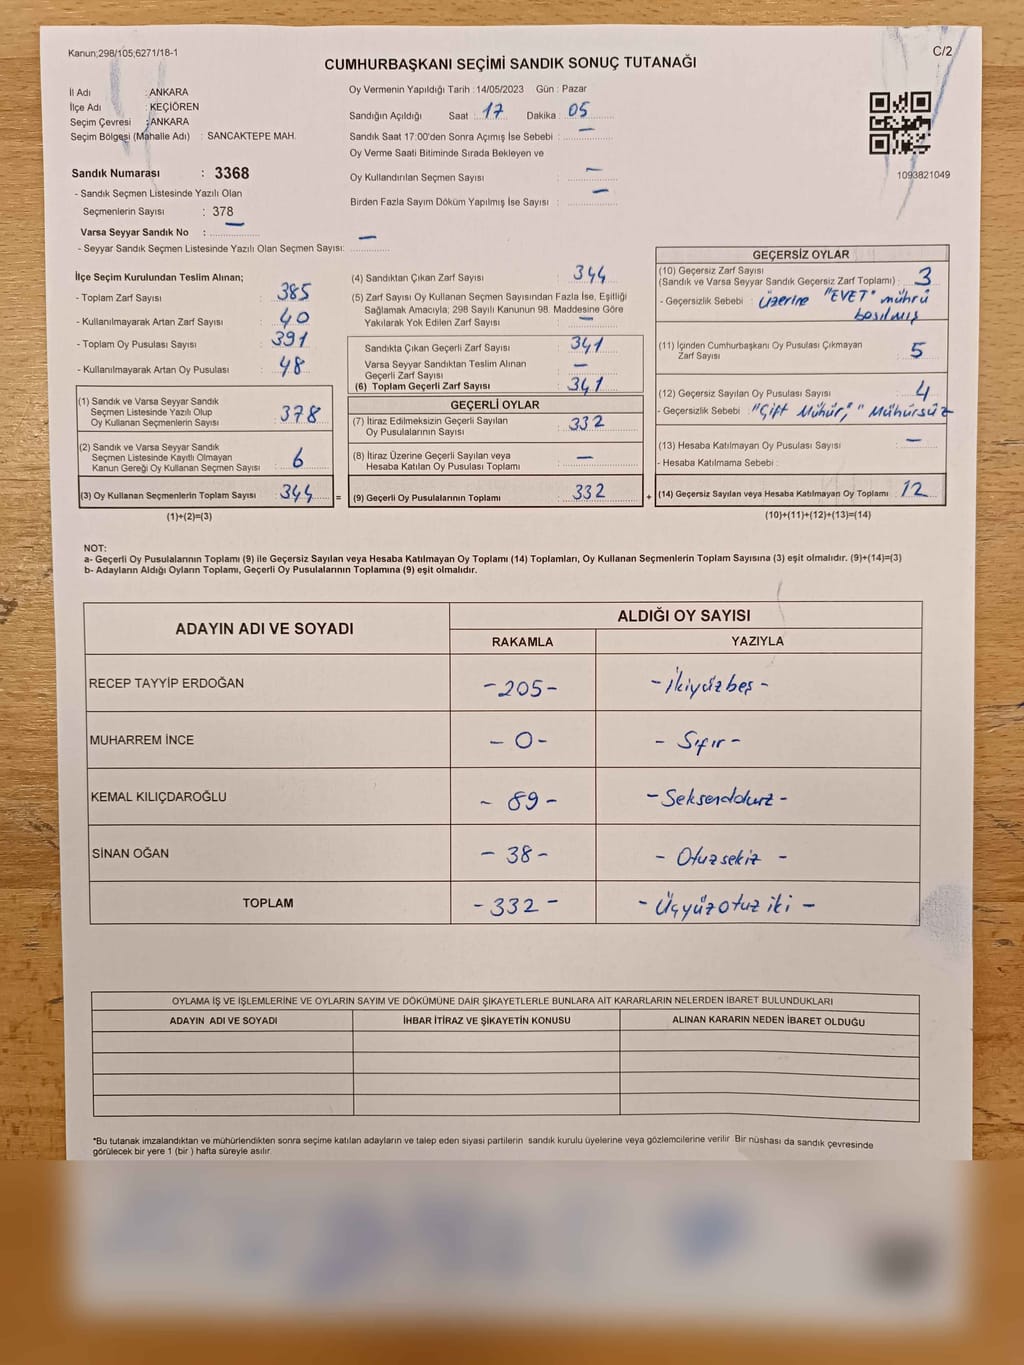 Kanun;298/105;6271/18-1
C/2
CUMHURBAŞKANI SEÇİMİ SANDIK SONUÇ TUTANAĞI
İl Adı : ANKARA
İlçe Adı : KEÇİÖREN
Seçim Çevresi : ANKARA
Seçim Bölgesi (Mahalle Adı) : SANCAKTEPE MAH.
Sandık Numarası : 3368
- Sandık Seçmen Listesinde Yazılı Olan
Seçmenlerin Sayısı : 378
Varsa Seyyar Sandık No : —
- Seyyar Sandık Seçmen Listesinde Yazılı Olan Seçmen Sayısı: —
Oy Vermenin Yapıldığı Tarih : 14/05/2023 Gün : Pazar
Sandığın Açıldığı Saat : 17 Dakika : 05
Sandık Saat 17:00'den Sonra Açımış İse Sebebi : —
Oy Verme Saati Bitiminde Sırada Bekleyen ve
Oy Kullandırılan Seçmen Sayısı : —
Birden Fazla Sayım Döküm Yapılmış İse Sayısı : —
1093821049
İlçe Seçim Kurulundan Teslim Alınan;
- Toplam Zarf Sayısı : 385
- Kullanılmayarak Artan Zarf Sayısı : 40
- Toplam Oy Pusulası Sayısı : 391
- Kullanılmayarak Artan Oy Pusulası : 48
(1) Sandık ve Varsa Seyyar Sandık
Seçmen Listesinde Yazılı Olup
Oy Kullanan Seçmenlerin Sayısı : 378
(2) Sandık ve Varsa Seyyar Sandık
Seçmen Listesinde Kayıtlı Olmayan
Kanun Gereği Oy Kullanan Seçmen Sayısı : 6
(3) Oy Kullanan Seçmenlerin Toplam Sayısı : 344 =
(1)+(2)=(3)
(4) Sandıktan Çıkan Zarf Sayısı : 344
(5) Zarf Sayısı Oy Kullanan Seçmen Sayısından Fazla İse, Eşitliği
Sağlamak Amacıyla; 298 Sayılı Kanunun 98. Maddesine Göre
Yakılarak Yok Edilen Zarf Sayısı : —
Sandıkta Çıkan Geçerli Zarf Sayısı : 341
Varsa Seyyar Sandıktan Teslim Alınan
Geçerli Zarf Sayısı : —
(6) Toplam Geçerli Zarf Sayısı : 341
GEÇERLİ OYLAR
(7) İtiraz Edilmeksizin Geçerli Sayılan
Oy Pusulalarının Sayısı : 332
(8) İtiraz Üzerine Geçerli Sayılan veya
Hesaba Katılan Oy Pusulası Toplamı : —
(9) Geçerli Oy Pusulalarının Toplamı : 332 +
GEÇERSİZ OYLAR
(10) Geçersiz Zarf Sayısı
(Sandık ve Varsa Seyyar Sandık Geçersiz Zarf Toplamı) : 3
- Geçersizlik Sebebi : üzerine "EVET" mührü
basılmış
(11) İçinden Cumhurbaşkanı Oy Pusulası Çıkmayan
Zarf Sayısı : 5
(12) Geçersiz Sayılan Oy Pusulası Sayısı : 4
- Geçersizlik Sebebi : "Çift Mühür," "Mühürsüz
(13) Hesaba Katılmayan Oy Pusulası Sayısı : —
- Hesaba Katılmama Sebebi :
(14) Geçersiz Sayılan veya Hesaba Katılmayan Oy Toplamı : 12
(10)+(11)+(12)+(13)=(14)
NOT:
a- Geçerli Oy Pusulalarının Toplamı (9) ile Geçersiz Sayılan veya Hesaba Katılmayan Oy Toplamı (14) Toplamları, Oy Kullanan Seçmenlerin Toplam Sayısına (3) eşit olmalıdır. (9)+(14)=(3)
b- Adayların Aldığı Oyların Toplamı, Geçerli Oy Pusulalarının Toplamına (9) eşit olmalıdır.
ADAYIN ADI VE SOYADI
ALDIĞI OY SAYISI
RAKAMLA YAZIYLA
RECEP TAYYİP ERDOĞAN -205- -İkiyüzbeş-
MUHARREM İNCE -0- -Sıfır-
KEMAL KILIÇDAROĞLU -89- -Seksendokuz-
SİNAN OĞAN -38- -Otuzsekiz-
TOPLAM -332- -Üçyüzotuziki-
OYLAMA İŞ VE İŞLEMLERİNE VE OYLARIN SAYIM VE DÖKÜMÜNE DAİR ŞİKAYETLERLE BUNLARA AİT KARARLARIN NELERDEN İBARET BULUNDUKLARI
ADAYIN ADI VE SOYADI İHBAR İTİRAZ VE ŞİKAYETİN KONUSU ALINAN KARARIN NEDEN İBARET OLDUĞU
*Bu tutanak imzalandıktan ve mühürlendikten sonra seçime katılan adayların ve talep eden siyasi partilerin sandık kurulu üyelerine veya gözlemcilerine verilir Bir nüshası da sandık çevresinde
görülecek bir yere 1 (bir ) hafta süreyle asılır.